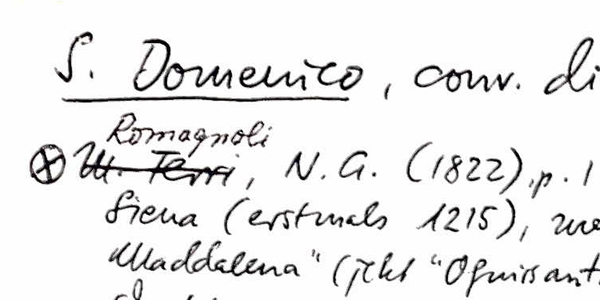 S. Domenico, conv. di
Romagnoli
M. Terri, N.G. (1822), p. 1
Siena (erstmals 1215),
Maddalena" (jetzt "Ognissant